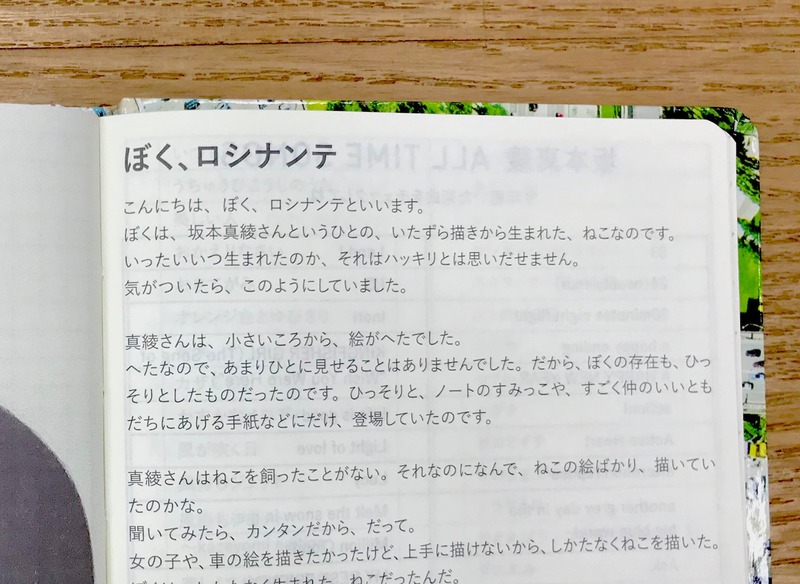 ぼく、ロシナンテ
こんにちは、ぼく、ロシナンテといいます。
ぼくは、坂本真綾さんというひとの、いたずら描きから生まれた、ねこなのです。
いったいいつ生まれたのか、それはハッキリとは思いだせません。
気がついたら、このようにしていました。
真綾さんは、小さいころから、絵がへたでした。
へたなので、あまりひとに見せることはありませんでした。だから、ぼくの存在も、ひっ
そりとしたものだったのです。ひっそりと、ノートのすみっこや、すごく仲のいいとも
だちにあげる手紙などにだけ、登場していたのです。
真綾さんはねこを飼ったことがない。それなのになんで、ねこの絵ばかり、描いてい
たのかな。
聞いてみたら、カンタンだから、だって。
女の子や、車の絵を描きたかったけど、上手に描けないから、しかたなくねこを描いた。